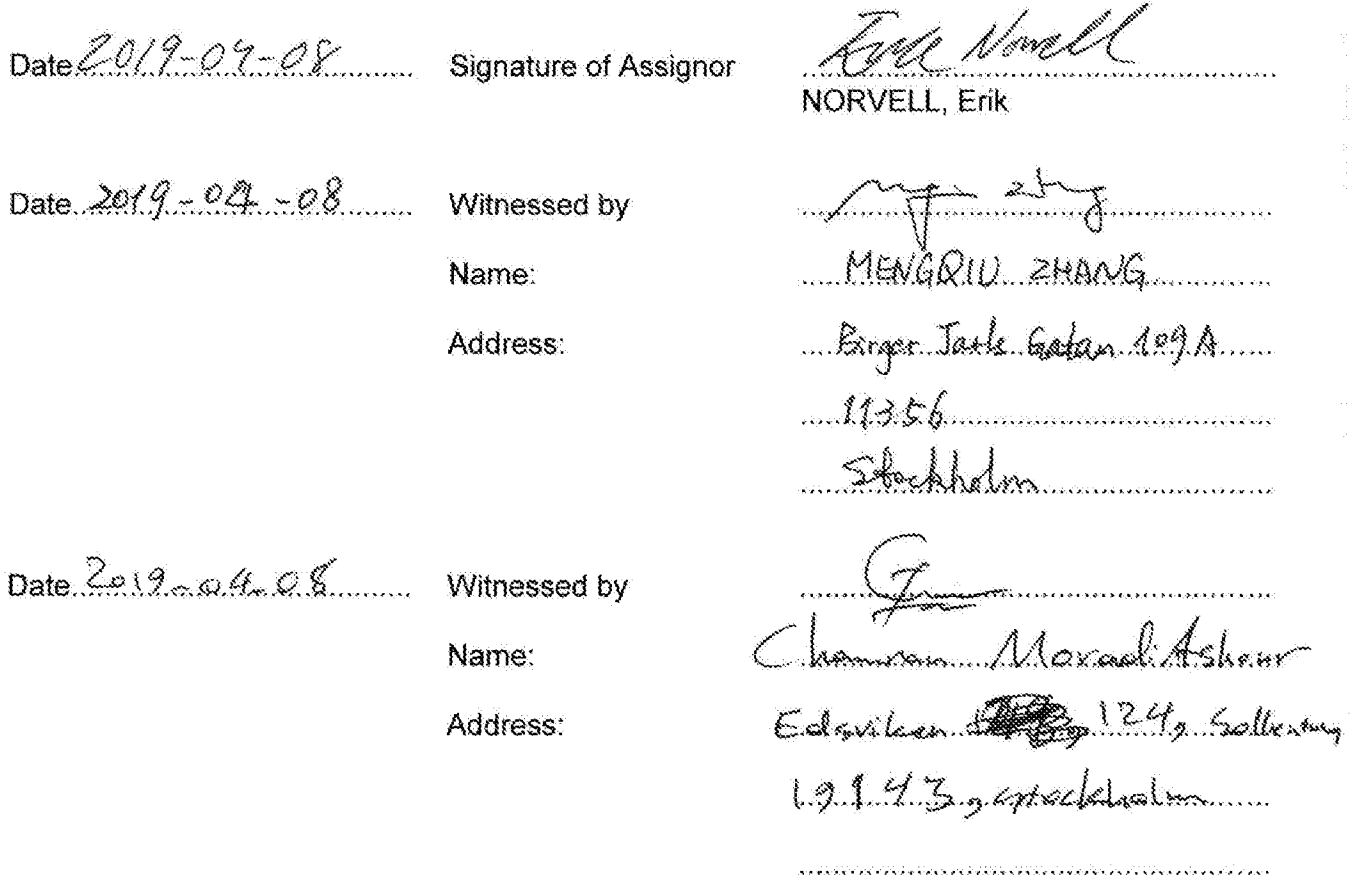 Date 2019-04-08 Signature of Assignor Erik Norvell
NORVELL, Erik
Date 2019-04-08 Witnessed by
Name: MENGQIU ZHANG
Address: Birger Jarls Gatan 109A
11356
Stockholm
Date 2019-04-08 Witnessed by
Name: Chamran Moradi Ashour
Address: Edsviken 124, Sollentuna
19143, stockholm